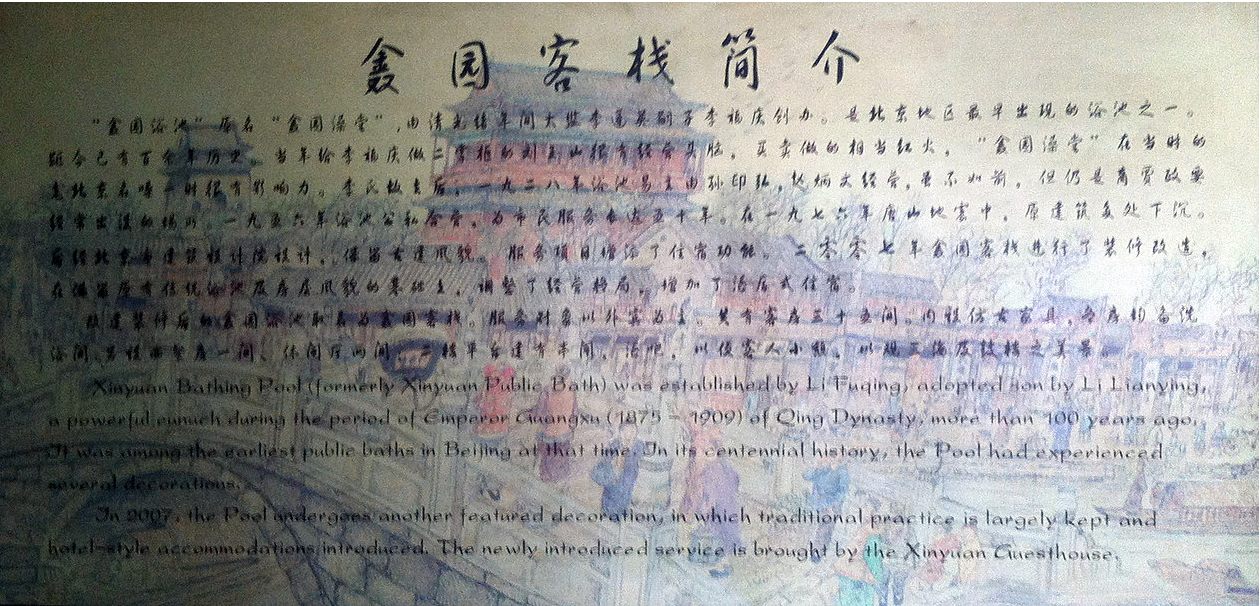 鑫园客栈简介
“鑫园浴池”原名“鑫园澡堂”，由清光绪年间太监李莲英嗣子李福庆创办。是北京地区最早出现的浴池之一。
距今已有百余年历史。当年给李福庆做二掌柜的刘玉山很有经营头脑，买卖做的相当红火，“鑫园澡堂”在当时的
老北京名噪一时很有影响力。李氏故去后，一九二八年浴池易主由孙印弘，赵炳文经营，虽不如前，但仍是商贾政要
经常出没的场所。一九五六年浴池公私合营，为市民服务长达五十年。在一九七六年唐山地震中，原建筑多处下沉。
后经北京市建筑设计院设计，保留古建风貌。服务项目增添了住宿功能。二零零七年鑫园客栈进行了装修改造，
在保留原有传统浴池及房屋风貌的基础上，调整了经营格局，增加了酒店式住宿。
改建装修后的鑫园浴池取名为鑫园客栈。服务对象以外宾为主。共有客房三十五间。内设仿古家具，每房均备洗
浴间，另设 一间、休闲厅两间。二楼平台建有 ，酒吧，以便客人小憩，以观三海及鼓楼之美景。
Xinyuan Bathing Pool (formerly Xinyuan Public Bath) was established by Li Fuqing, adopted son by Li Lianying,
a powerful eunuch during the period of Emperor Guangxu (1875 - 1909) of Qing Dynasty, more than 100 years ago.
It was among the earliest public baths in Beijing at that time. In its centennial history, the Pool had experienced
several decorations.
In 2007, the Pool undergoes another featured decoration, in which traditional practice is largely kept and
hotel-style accommodations introduced. The newly introduced service is brought by the Xinyuan Guesthouse.